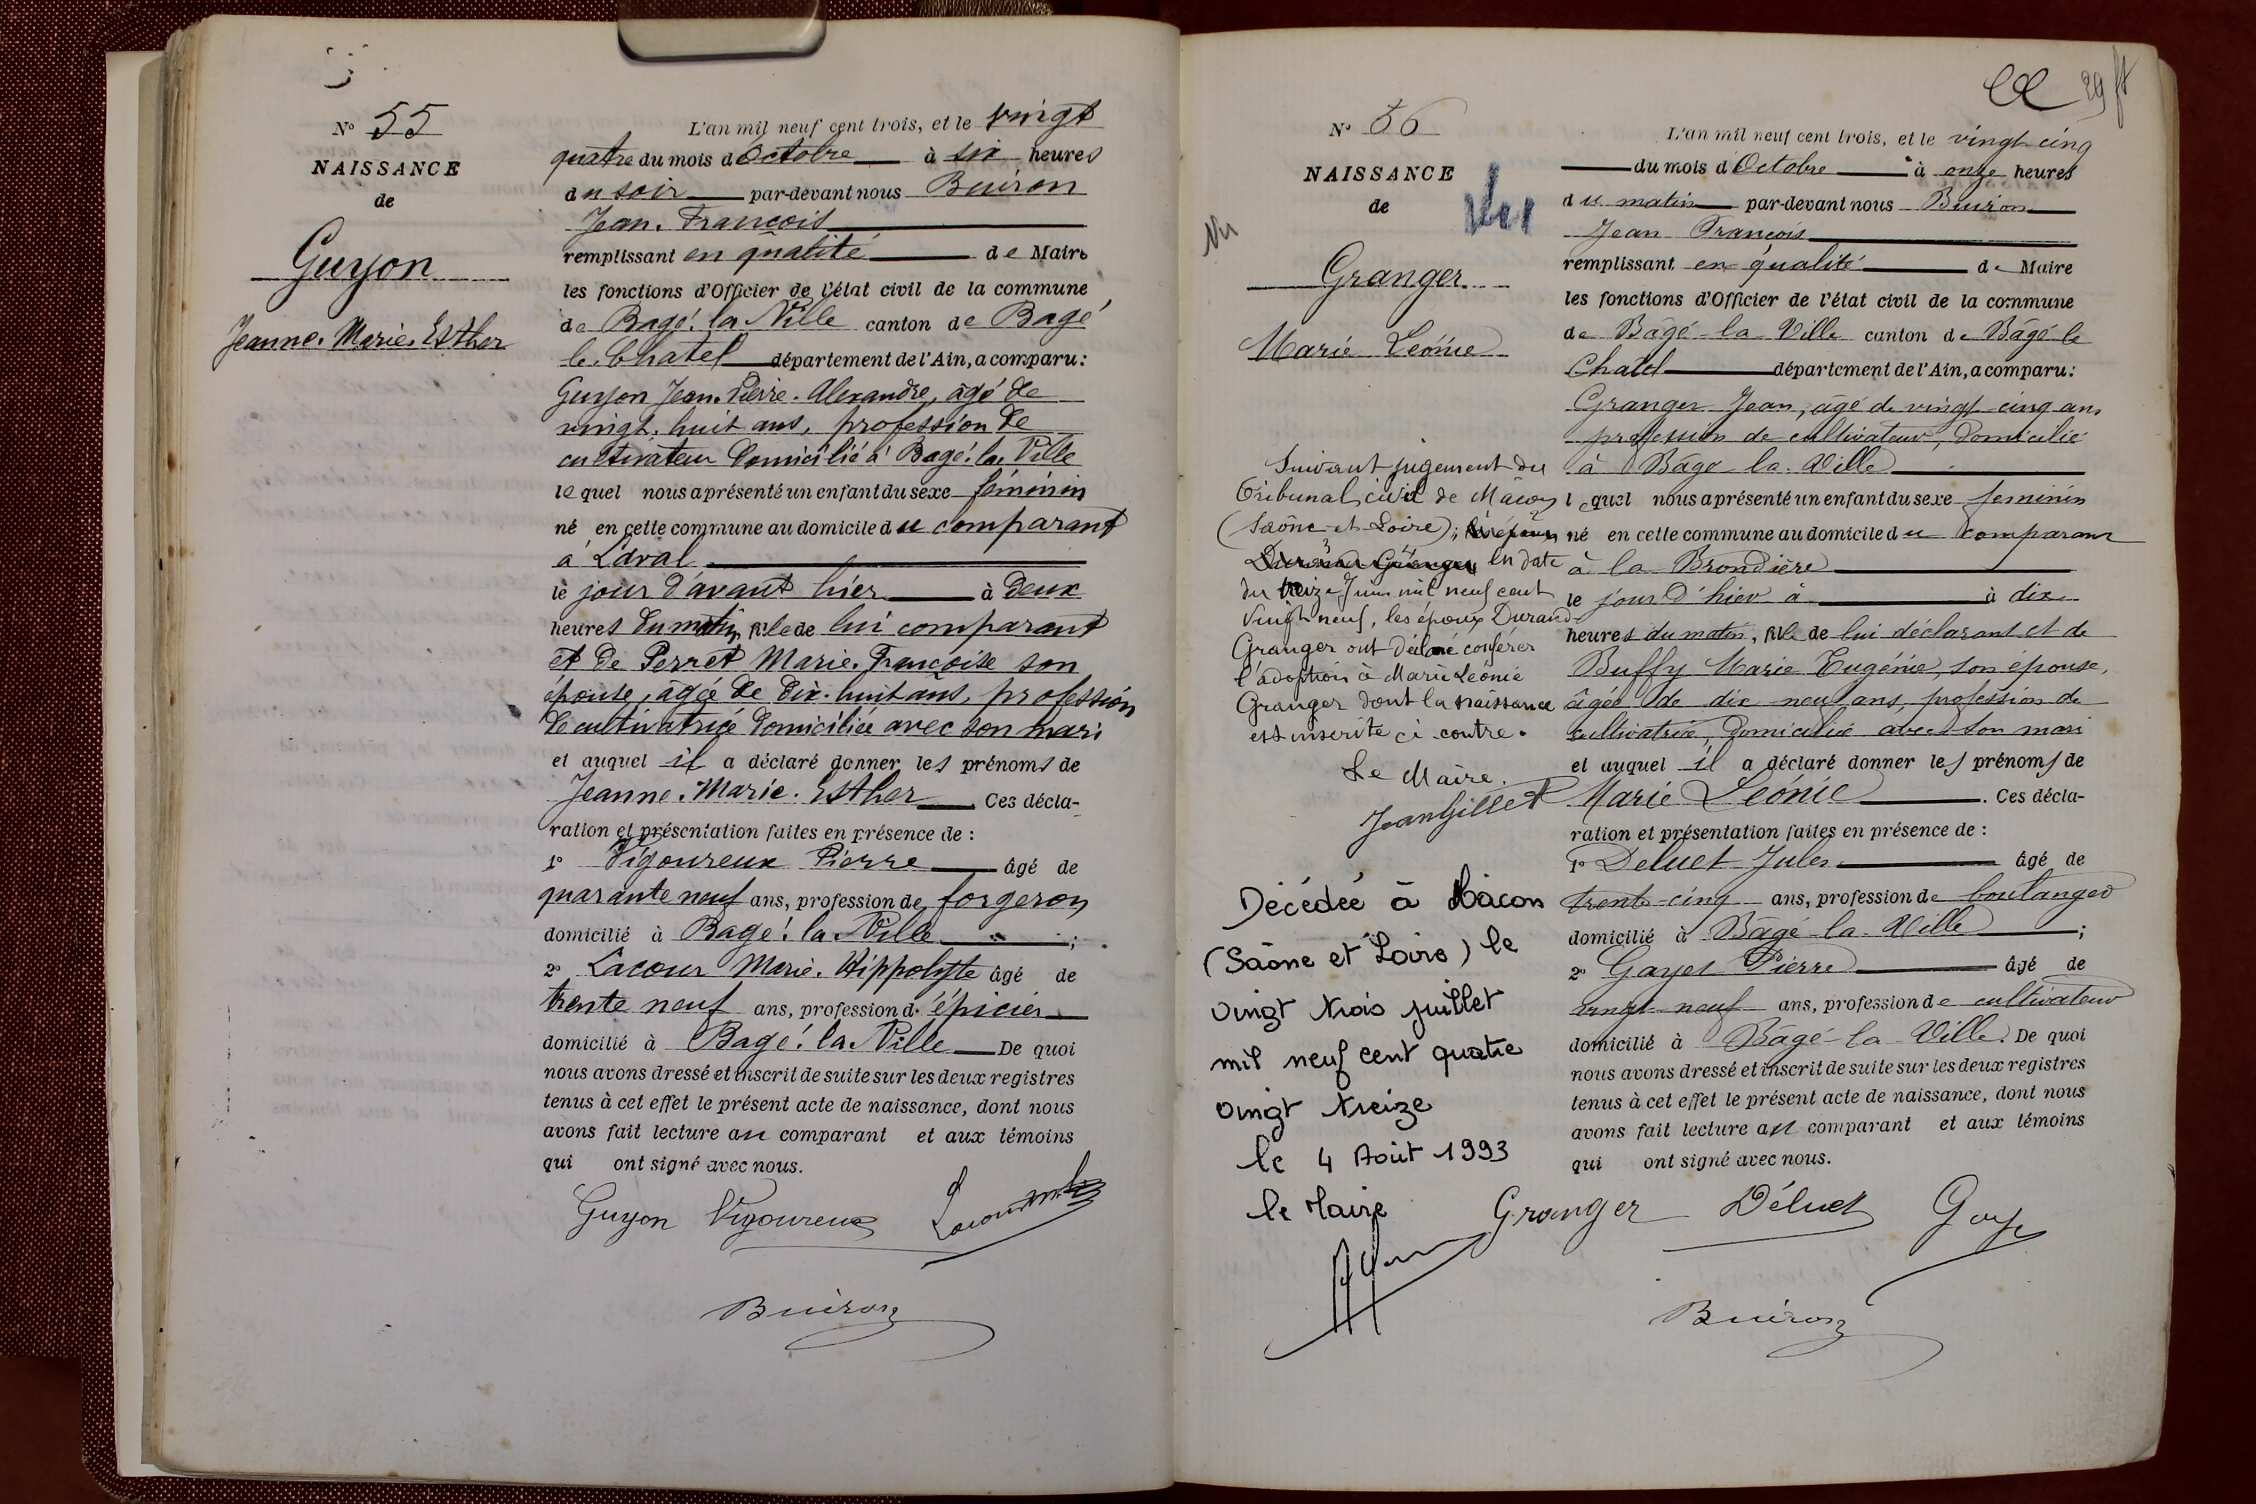 N° 55
NAISSANCE
de
Guyon
Jeanne. Marie. Esther
L'an mil neuf cent trois, et le vingt
quatre du mois d'Octobre à six heures
du soir par-devant nous Buiron
Jean. François
remplissant en qualité de Maire
les fonctions d'Officier de l'état civil de la commune
de Bagé. la Ville canton de Bagé
le. Chatel département de l'Ain, a comparu:
Guyon Jean. Pierre. Alexandre, âgé de
vingt. huit ans, profession de
cultivateur domicilié à Bagé. la. Ville
lequel nous a présenté un enfant du sexe féminin
né en cette commune au domicile du comparant
à Laval
le jour d'avant hier à deux
heures du matin, fille de lui comparant
et de Perret Marie. Françoise son
épouse, âgée de dix. huit ans, profession
de cultivatrice domiciliée avec son mari
et auquel il a déclaré donner les prénoms de
Jeanne. Marie. Esther. Ces décla-
ration et présentation faites en présence de :
1° Vigoureux Pierre âgé de
quarante neuf ans, profession de forgeron
domicilié à Bagé. la. Ville ;
2° Lacour Marie. Hippolyte âgé de
trente neuf ans, profession d'épicier
domicilié à Bagé. la. Ville De quoi
nous avons dressé et inscrit de suite sur les deux registres
tenus à cet effet le présent acte de naissance, dont nous
avons fait lecture au comparant et aux témoins
qui ont signé avec nous.
Guyon Vigoureux Lacour
Buiron
29
N° 56
NAISSANCE
de
Vu
Vu
Granger
Marie Léonie
Suivant jugement du
Tribunal civil de Mâcon
(Saône-et-Loire), les époux
Durand Granger en date
du treize Juin mil neuf cent
Vingt neuf, les époux Durand
Granger ont déclaré conférer
l'adoption à Marie Léonie
Granger dont la naissance
est inscrite ci-contre.
Le Maire.
Jean Gillet
Décédée à Mâcon
(Saône et Loire) le
vingt trois juillet
mil neuf cent quatre
vingt treize
le 4 Août 1993
le Maire
L'an mil neuf cent trois, et le vingt-cinq
du mois d'Octobre à onze heures
du matin par-devant nous Buiron
Jean François
remplissant en qualité de Maire
les fonctions d'Officier de l'état civil de la commune
de Bâgé-la-Ville canton de Bâgé-le
Chatel département de l'Ain, a comparu:
Granger Jean, âgé de vingt-cinq ans
profession de cultivateur, domicilié
à Bâgé-la-Ville
lequel nous a présenté un enfant du sexe féminin
né en cette commune au domicile du comparant
à la Brondière
le jour d'hier à à dix
heures du matin, fille de lui déclarant et de
Buffy Marie Eugénie, son épouse,
âgée de dix neuf ans, profession de
cultivatrice, domicilié avec son mari
et auquel il a déclaré donner les prénoms de
Marie Léonie. Ces décla-
ration et présentation faites en présence de :
1° Deluet Jules âgé de
trente-cinq ans, profession de boulanger
domicilié à Bâgé-la-Ville ;
2° Gayet Pierre âgé de
vingt-neuf ans, profession de cultivateur
domicilié à Bâgé-la-Ville. De quoi
nous avons dressé et inscrit de suite sur les deux registres
tenus à cet effet le présent acte de naissance, dont nous
avons fait lecture au comparant et aux témoins
qui ont signé avec nous.
Granger Déluet Gaye
Buiron